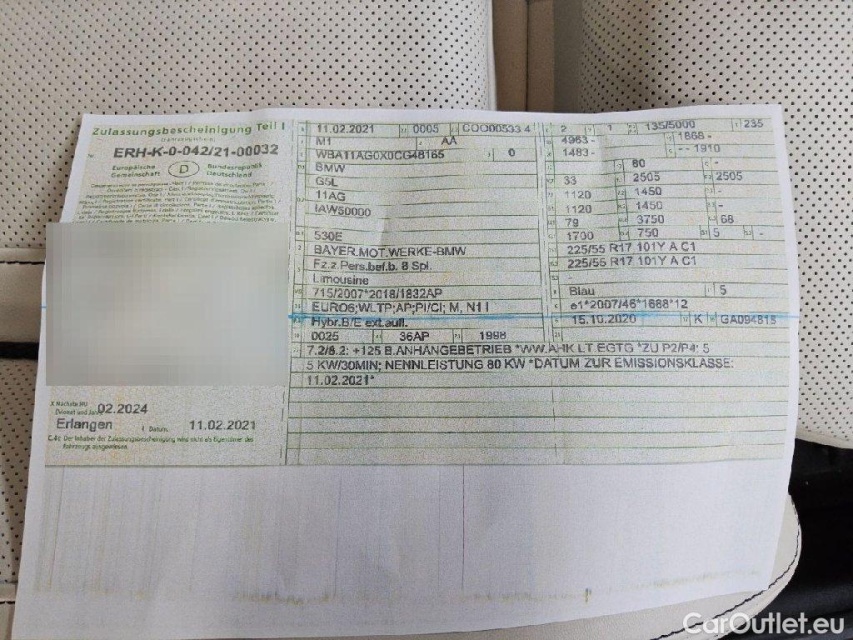 Zulassungsbescheinigung Teil I
ERH-K-0-042/21-00032
Europäische Gemeinschaft D Bundesrepublik Deutschland
11.02.2021 0005 COO00533 4
M1 AA
WBA11AG0X0CG48165 0
BMW
G5L
11AG
IAW50000
530E
BAYER.MOT.WERKE-BMW
Fz.z.Pers.bef.b. 8 Spl.
Limousine
715/2007*2018/1832AP
EURO6;WLTP;AP;PI/CI; M, N1 I
Hybr.B/E ext.aufl.
0025 36AP 1998
2 1 135/5000 235
4963- 1868 -
1483- - - 1910
80 -
33 2505 2505
1120 1450 -
1120 1450 -
79 3750 68
1700 750 5 -
225/55 R17 101Y A C1
225/55 R17 101Y A C1
Blau 5
e1*2007/46*1688*12
15.10.2020 K GA094815
7.2/8.2: +125 B.ANHÄNGEBETRIEB *WW.AHK LT.EGTG *ZU P2/P4: 5
5 KW/30MIN; NENNLEISTUNG 80 KW *DATUM ZUR EMISSIONSKLASSE:
11.02.2021*
X Nächste HU
02.2024
Erlangen I Datum 11.02.2021
C.4c Der Inhaber der Zulassungsbescheinigung wird nicht als Eigentümer des Fahrzeugs ausgewiesen.
CarOutlet.eu